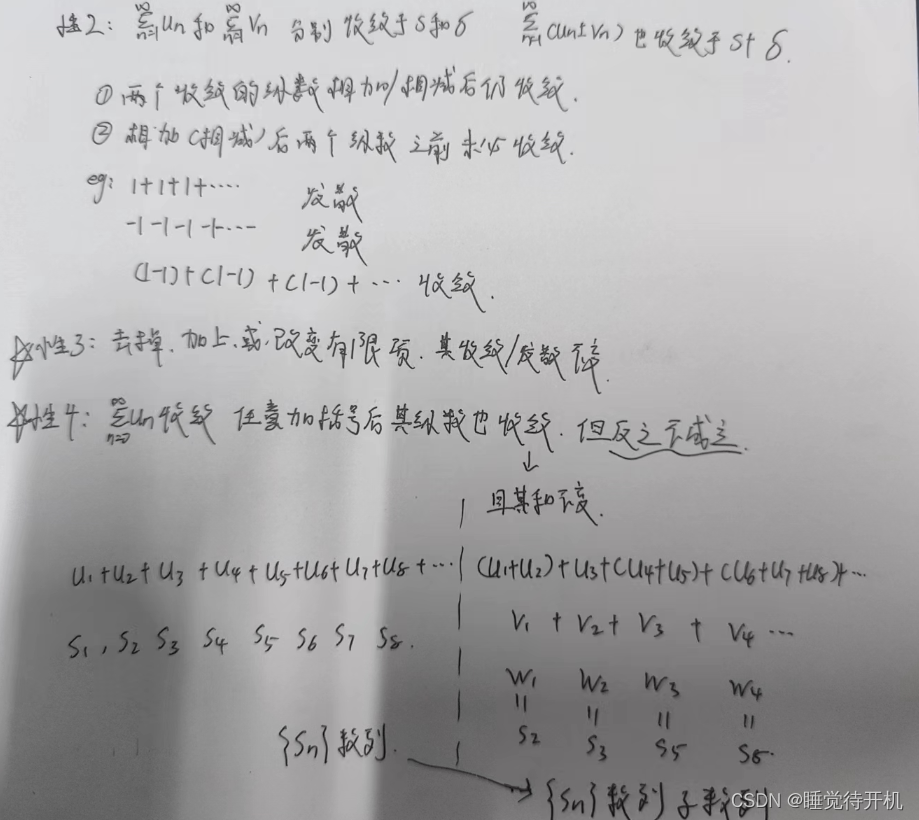 性2: ∞∑n=1 Un 和 ∞∑n=1 Vn 分别收敛于S和δ ∞∑n=1 (Un±Vn)也收敛于S±δ.
① 两个收敛的级数相加/相减后仍收敛.
② 相加(相减)后两个级数之前未必收敛.
eg: 1+1+1+···· 发散
-1-1-1-1-··· 发散
(1-1)+(1-1)+(1-1)+··· 收敛.
☆性3: 去掉、加上、或改变有限项、其收敛/发散不变
☆性4: ∞∑n=0 Un收敛 任意加括号后其级数也收敛、但反之不成立.
↓
且其和不变.
U1+U2+U3+U4+U5+U6+U7+U8+··· (U1+U2)+U3+(U4+U5)+(U6+U7+U8)+···
V1 + V2 + V3 + V4 ···
S1, S2 S3 S4 S5 S6 S7 S8.
W1 W2 W3 W4
|| || || ||
S2 S3 S5 S8.
{Sn}数列.
→ {Sn}数列子数列
CSDN @睡觉待开机